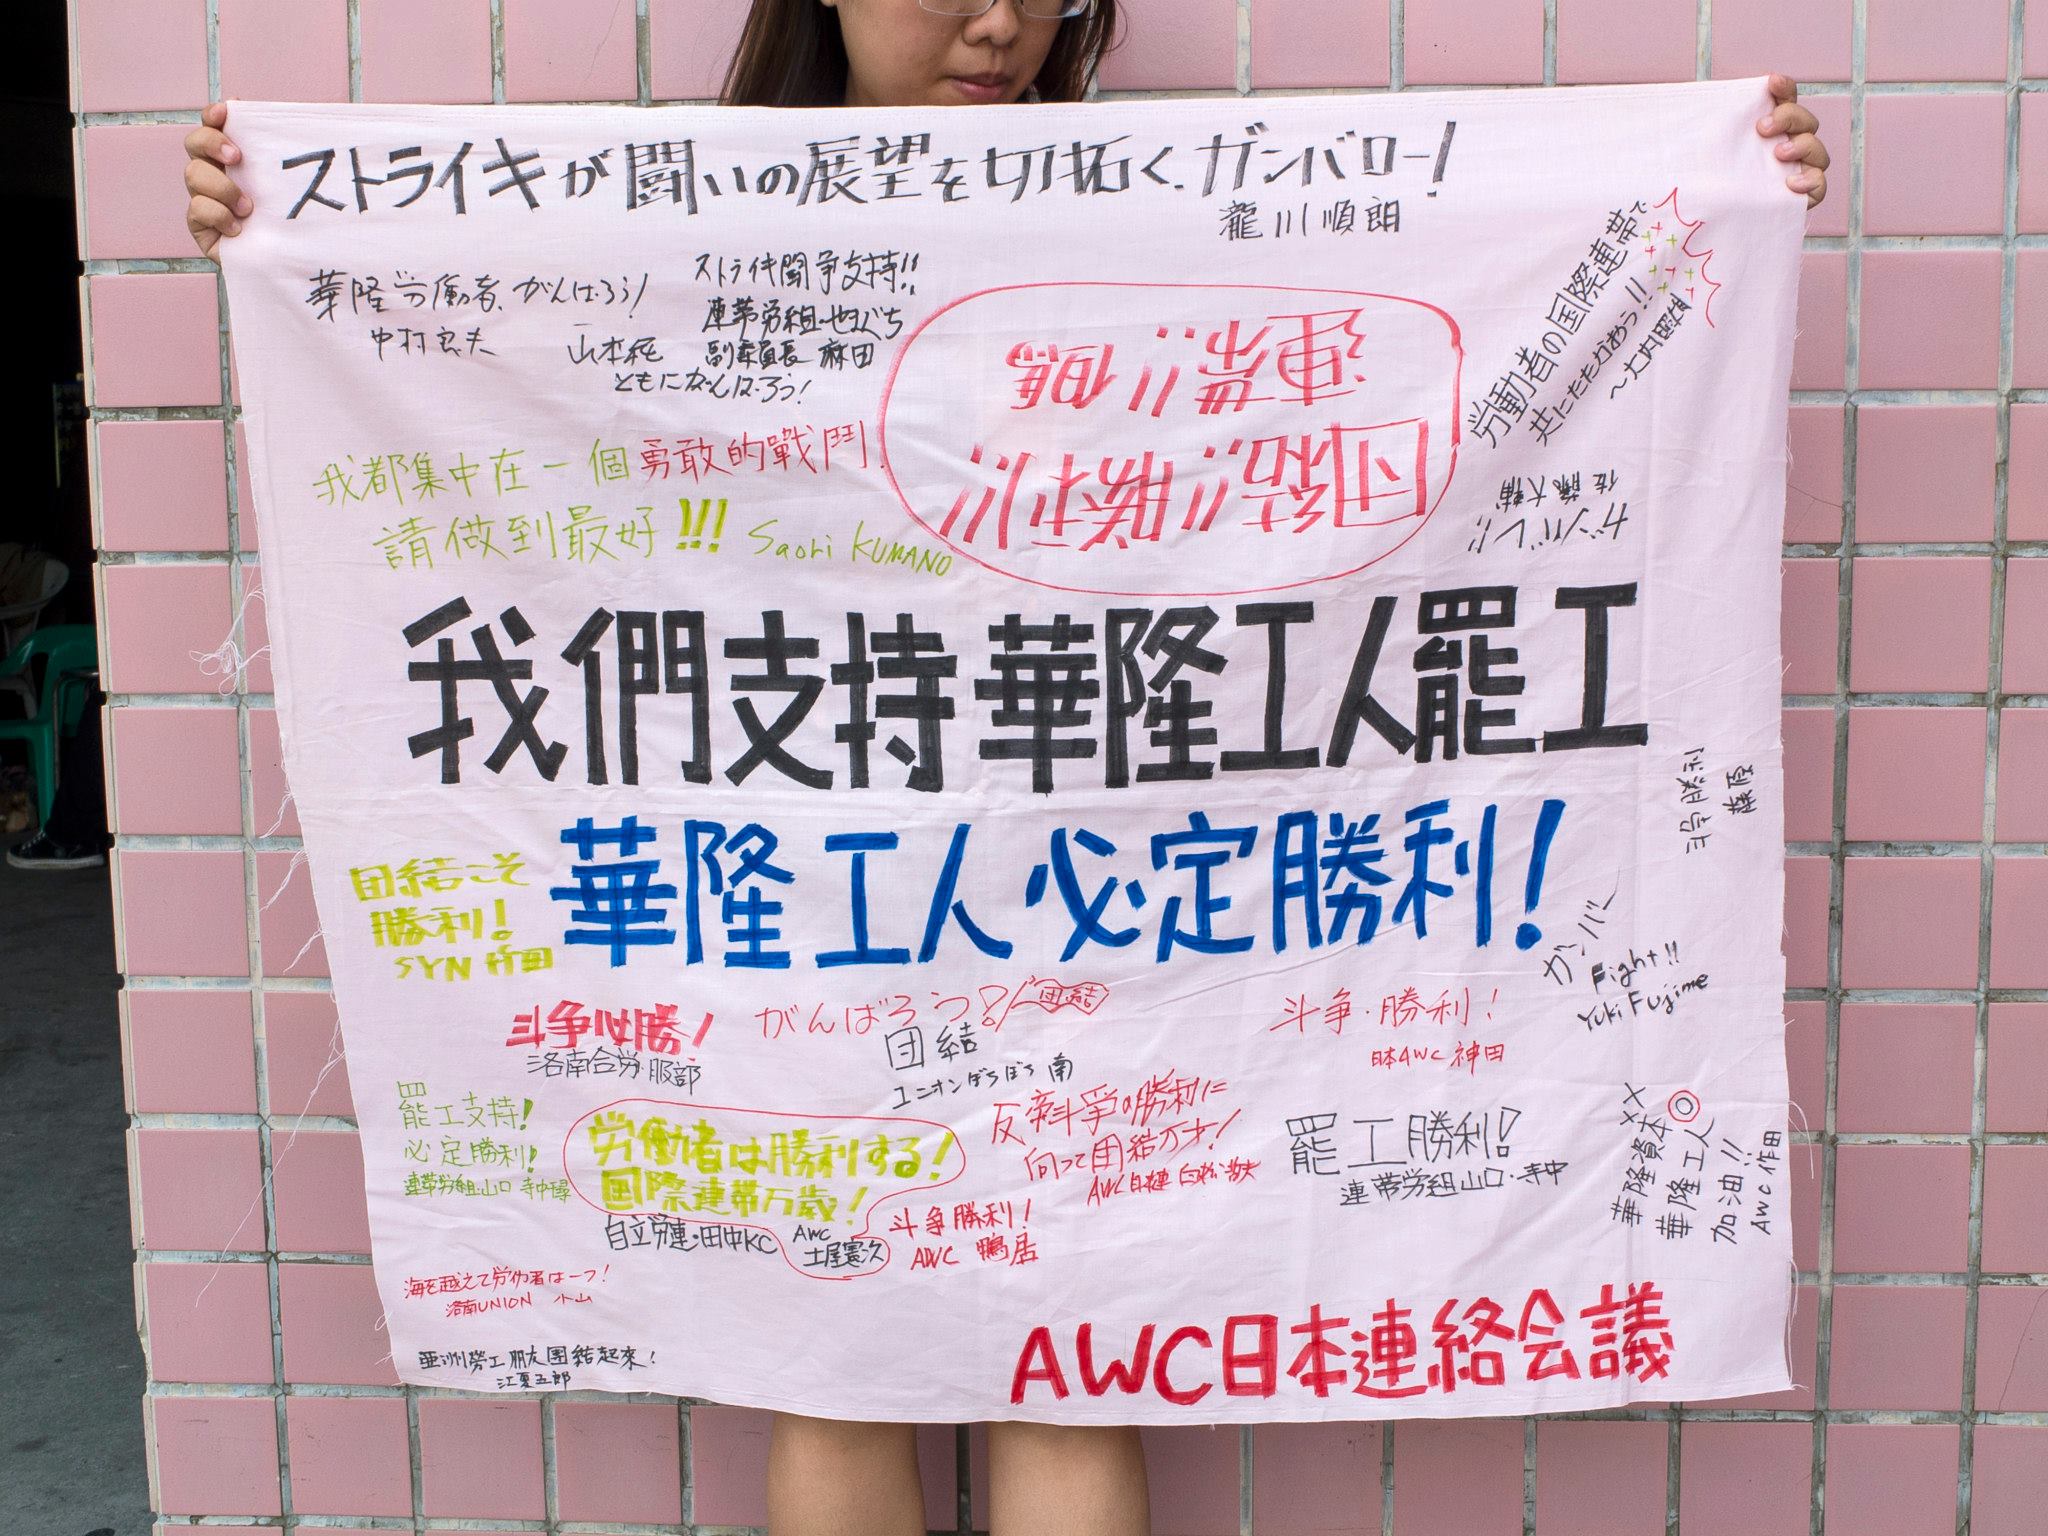 ストライキが闘いの展望を切拓く、ガンバロー!
瀧川順朗
華隆労働者、がんばろう!
中村
山本純
ストライキ闘争支持!!
連帯労組・やまぐち
副委員長 麻田
ともにがんばろう!
労働者の国際連帯で
共にたたかおう!!
~大内
団結!!勝利!!!
連帯!!
我都集中在一個勇敢的戰鬥.
請做到最好!!! Saori KUMANO
ガンバレ!!
佐藤大輔
我們支持華隆工人罷工
華隆工人必定勝利!
斗争勝利
藤原
団結こそ
勝利!
SYN 竹田
ガンバー
Fight!!
Yuki Fujime
斗争必勝!
洛南合労・服部
がんばろう! 団結
団結
ユニオンぼちぼち 南
斗争・勝利!
日本AWC 神田
罷工支持!
必定勝利!
連帯労組・山口 寺中
労働者は勝利する!
国際連帯万歳!
自立労連・田中KC
AWC
土屋憲次
向って団結
斗争勝利!
AWC 鴨居
罷工勝利!
連帯労組山口・寺中
華隆資本××
華隆工人◎
加油!!
AWC 作田
海を越えて労働者は一つ!
洛南UNION 小山
亜洲勞工朋友團結起來!
江夏五郎
AWC日本連絡会議